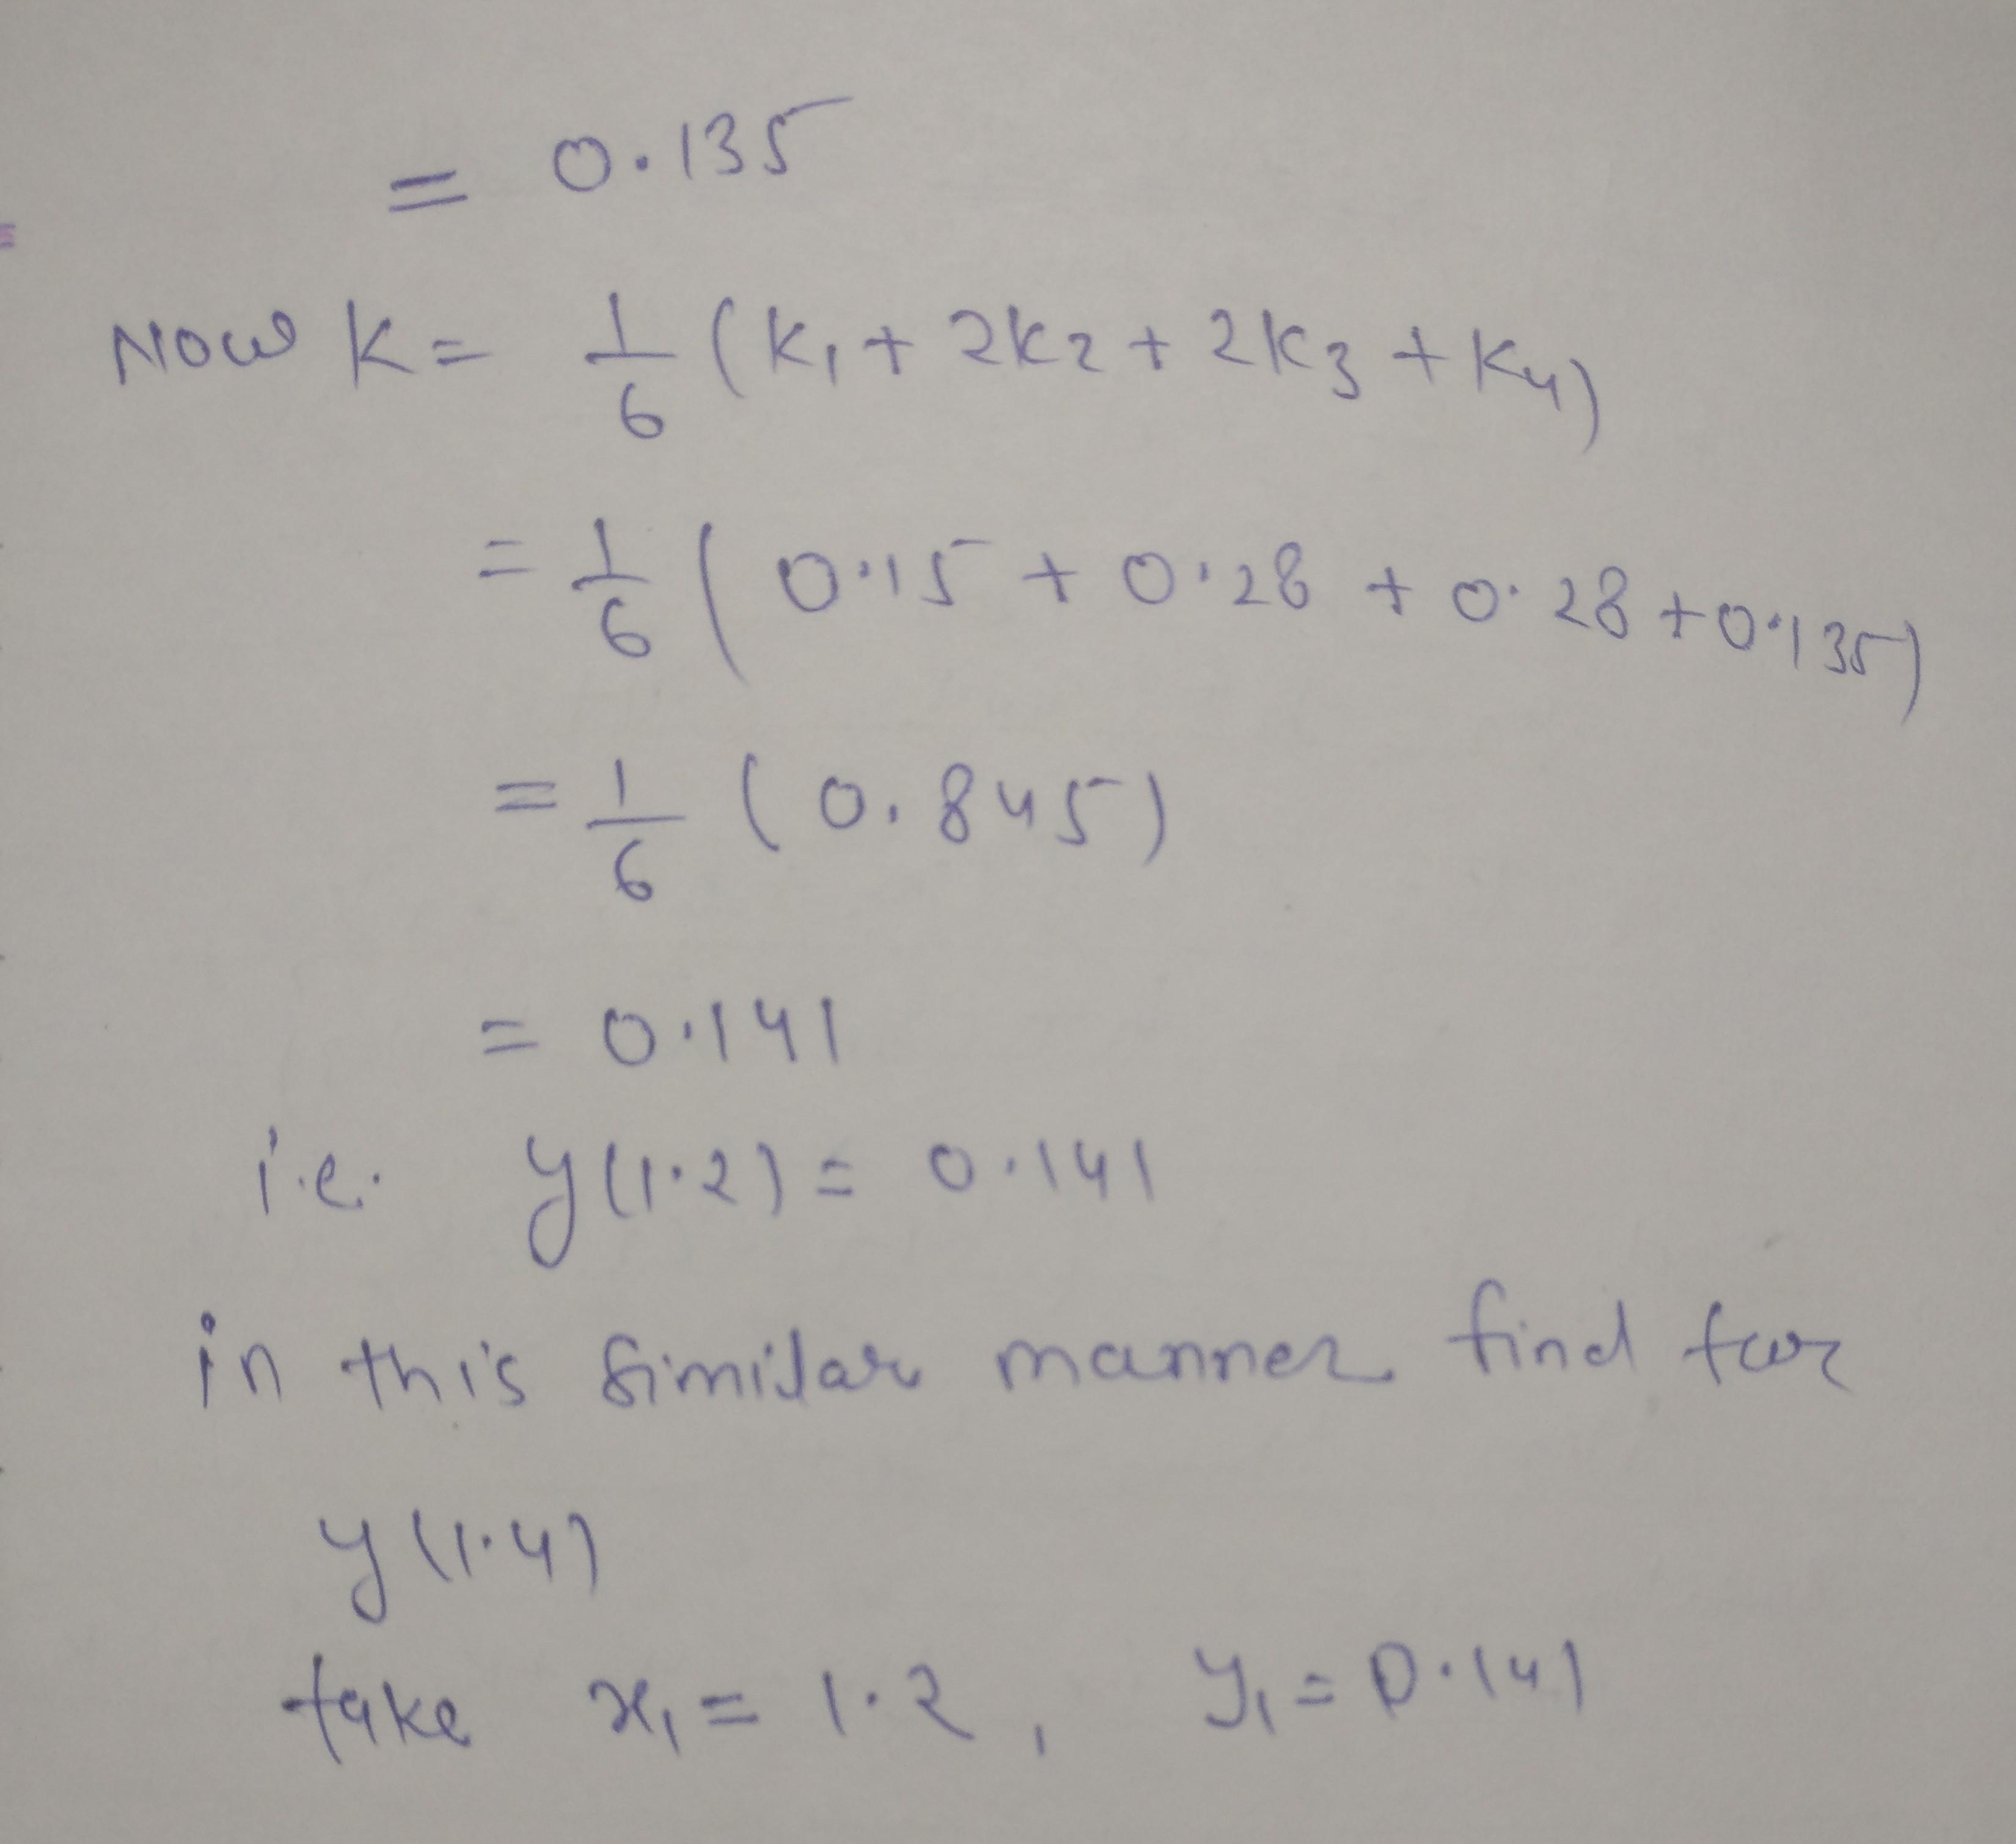 = 0.135
Now K = 1/6 (K₁ + 2K₂ + 2K₃ + K₄)
= 1/6 (0.15 + 0.28 + 0.28 + 0.135)
= 1/6 (0.845)
= 0.141
i.e. y(1.2) = 0.141
in this similar manner find for
y(1.4)
take x₁ = 1.2, y₁ = 0.141